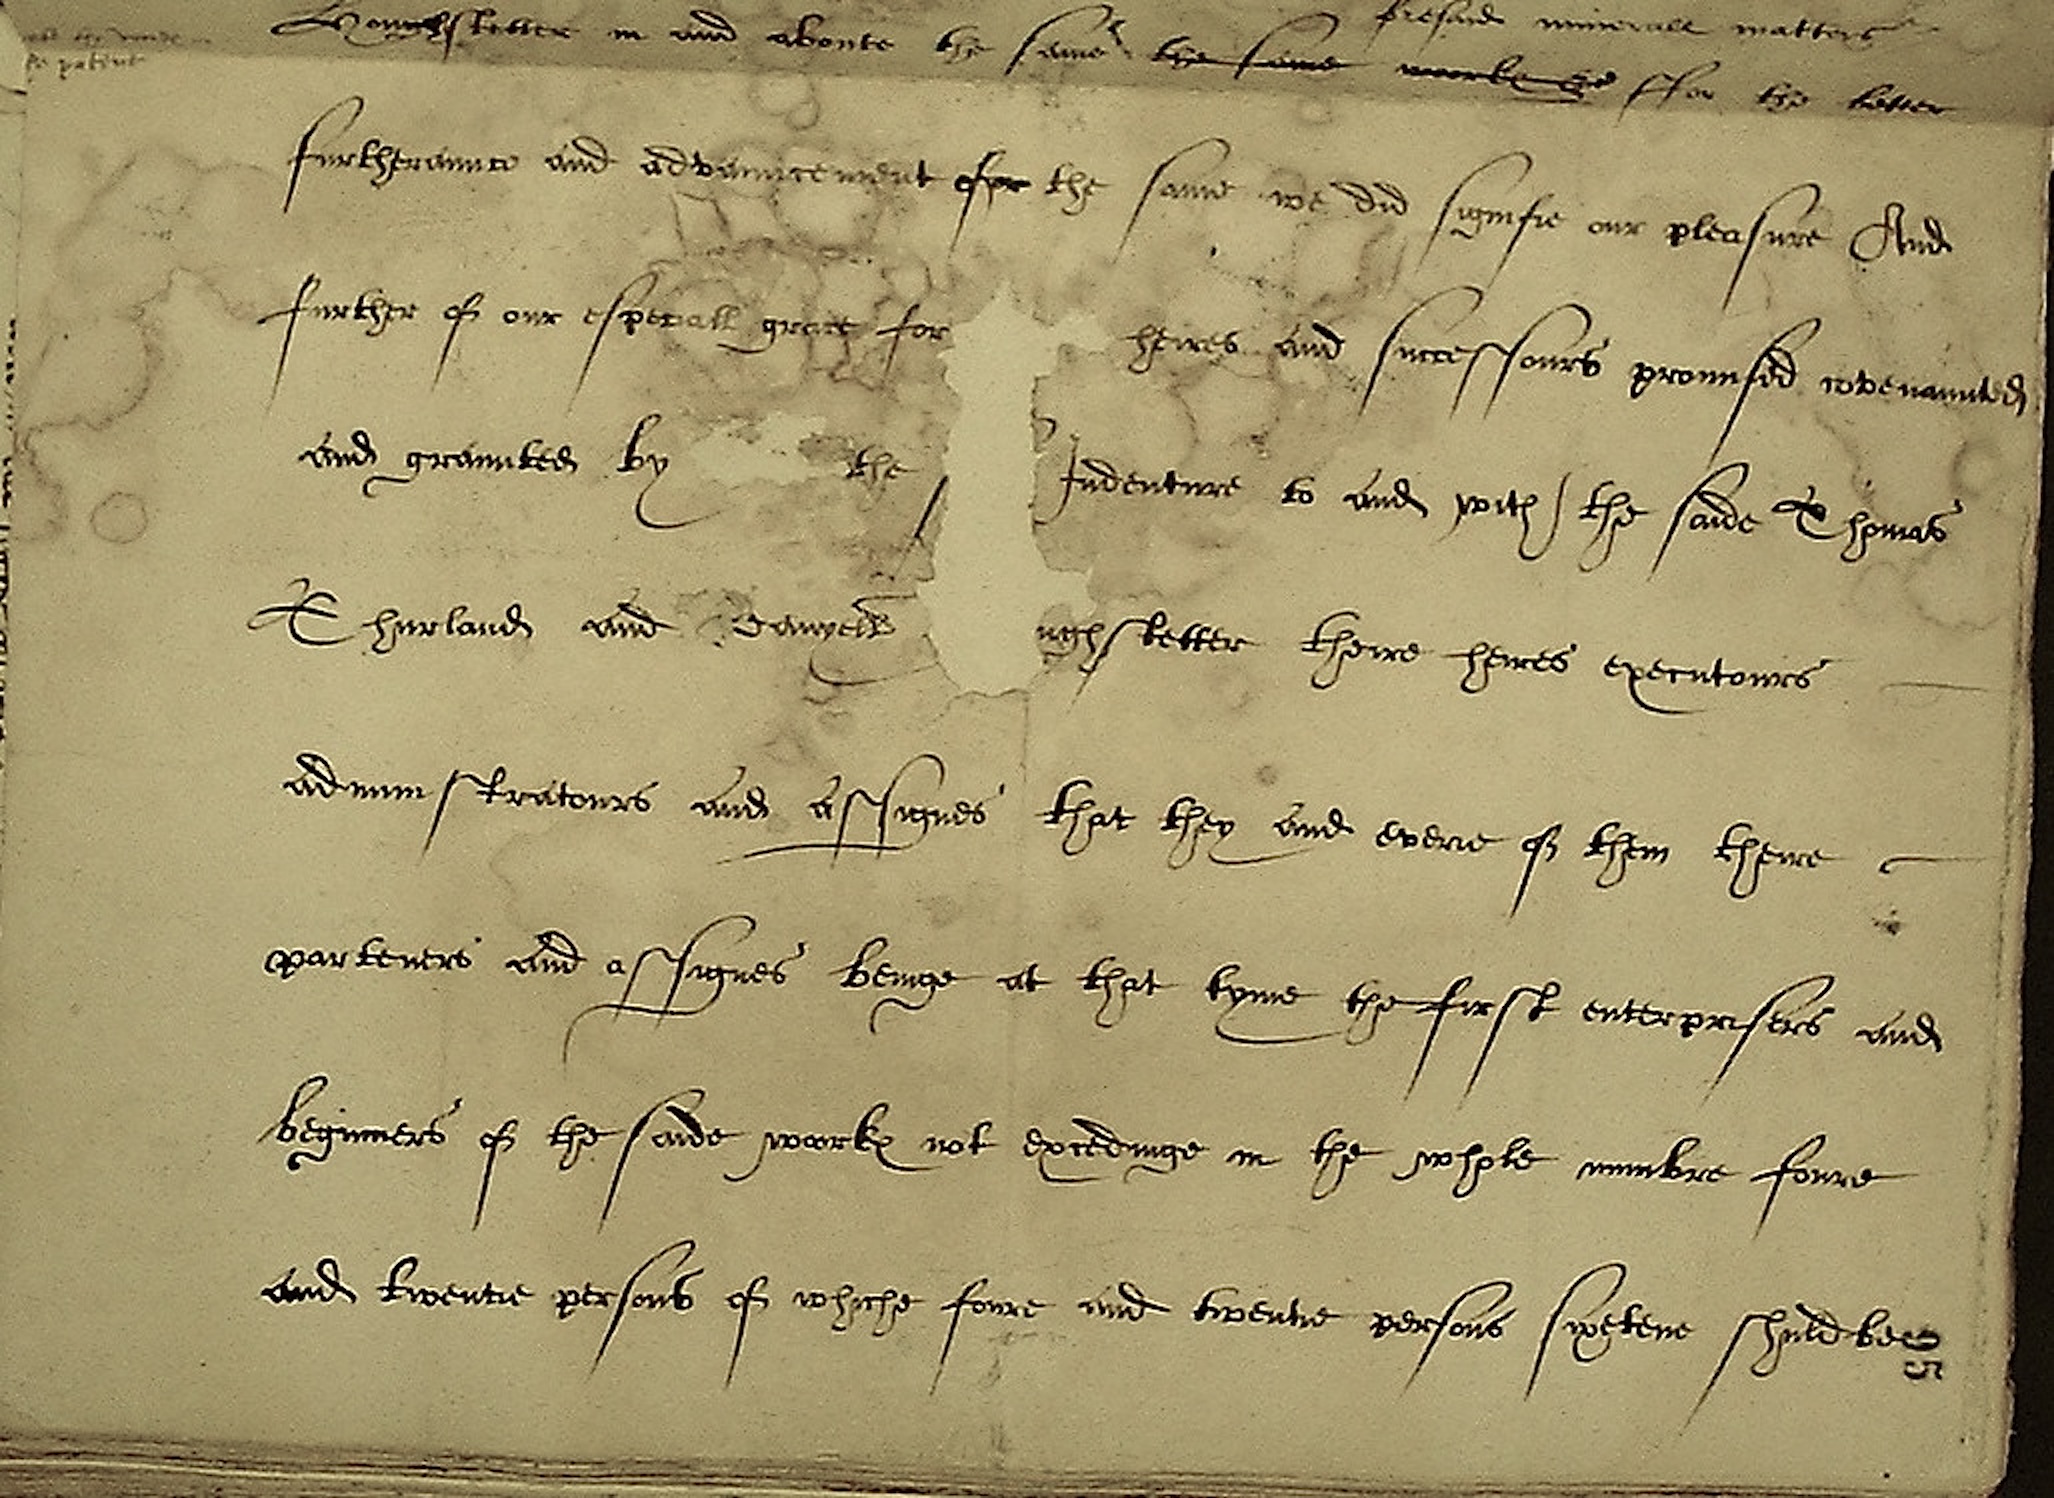 foresaid minerall matters
Houghstetter in and aboute the same the same worke for the better
the patent
furtheraunce and advauncement for the same we did signifie our pleasure And
further of our especiall grace for heires and successours promised covenaunted
and graunted by the Indenture to and with the saide Thomas
Thurland and Danyell ughstetter theire heires executours
administratours and assignes that they and everie of them theire
parteners and assignes beinge at that tyme the first enterprisers and
beginners of the saide workes not excedinge in the whole numbre foure
and twentie persons of whiche foure and twentie persons sixtene shuld be